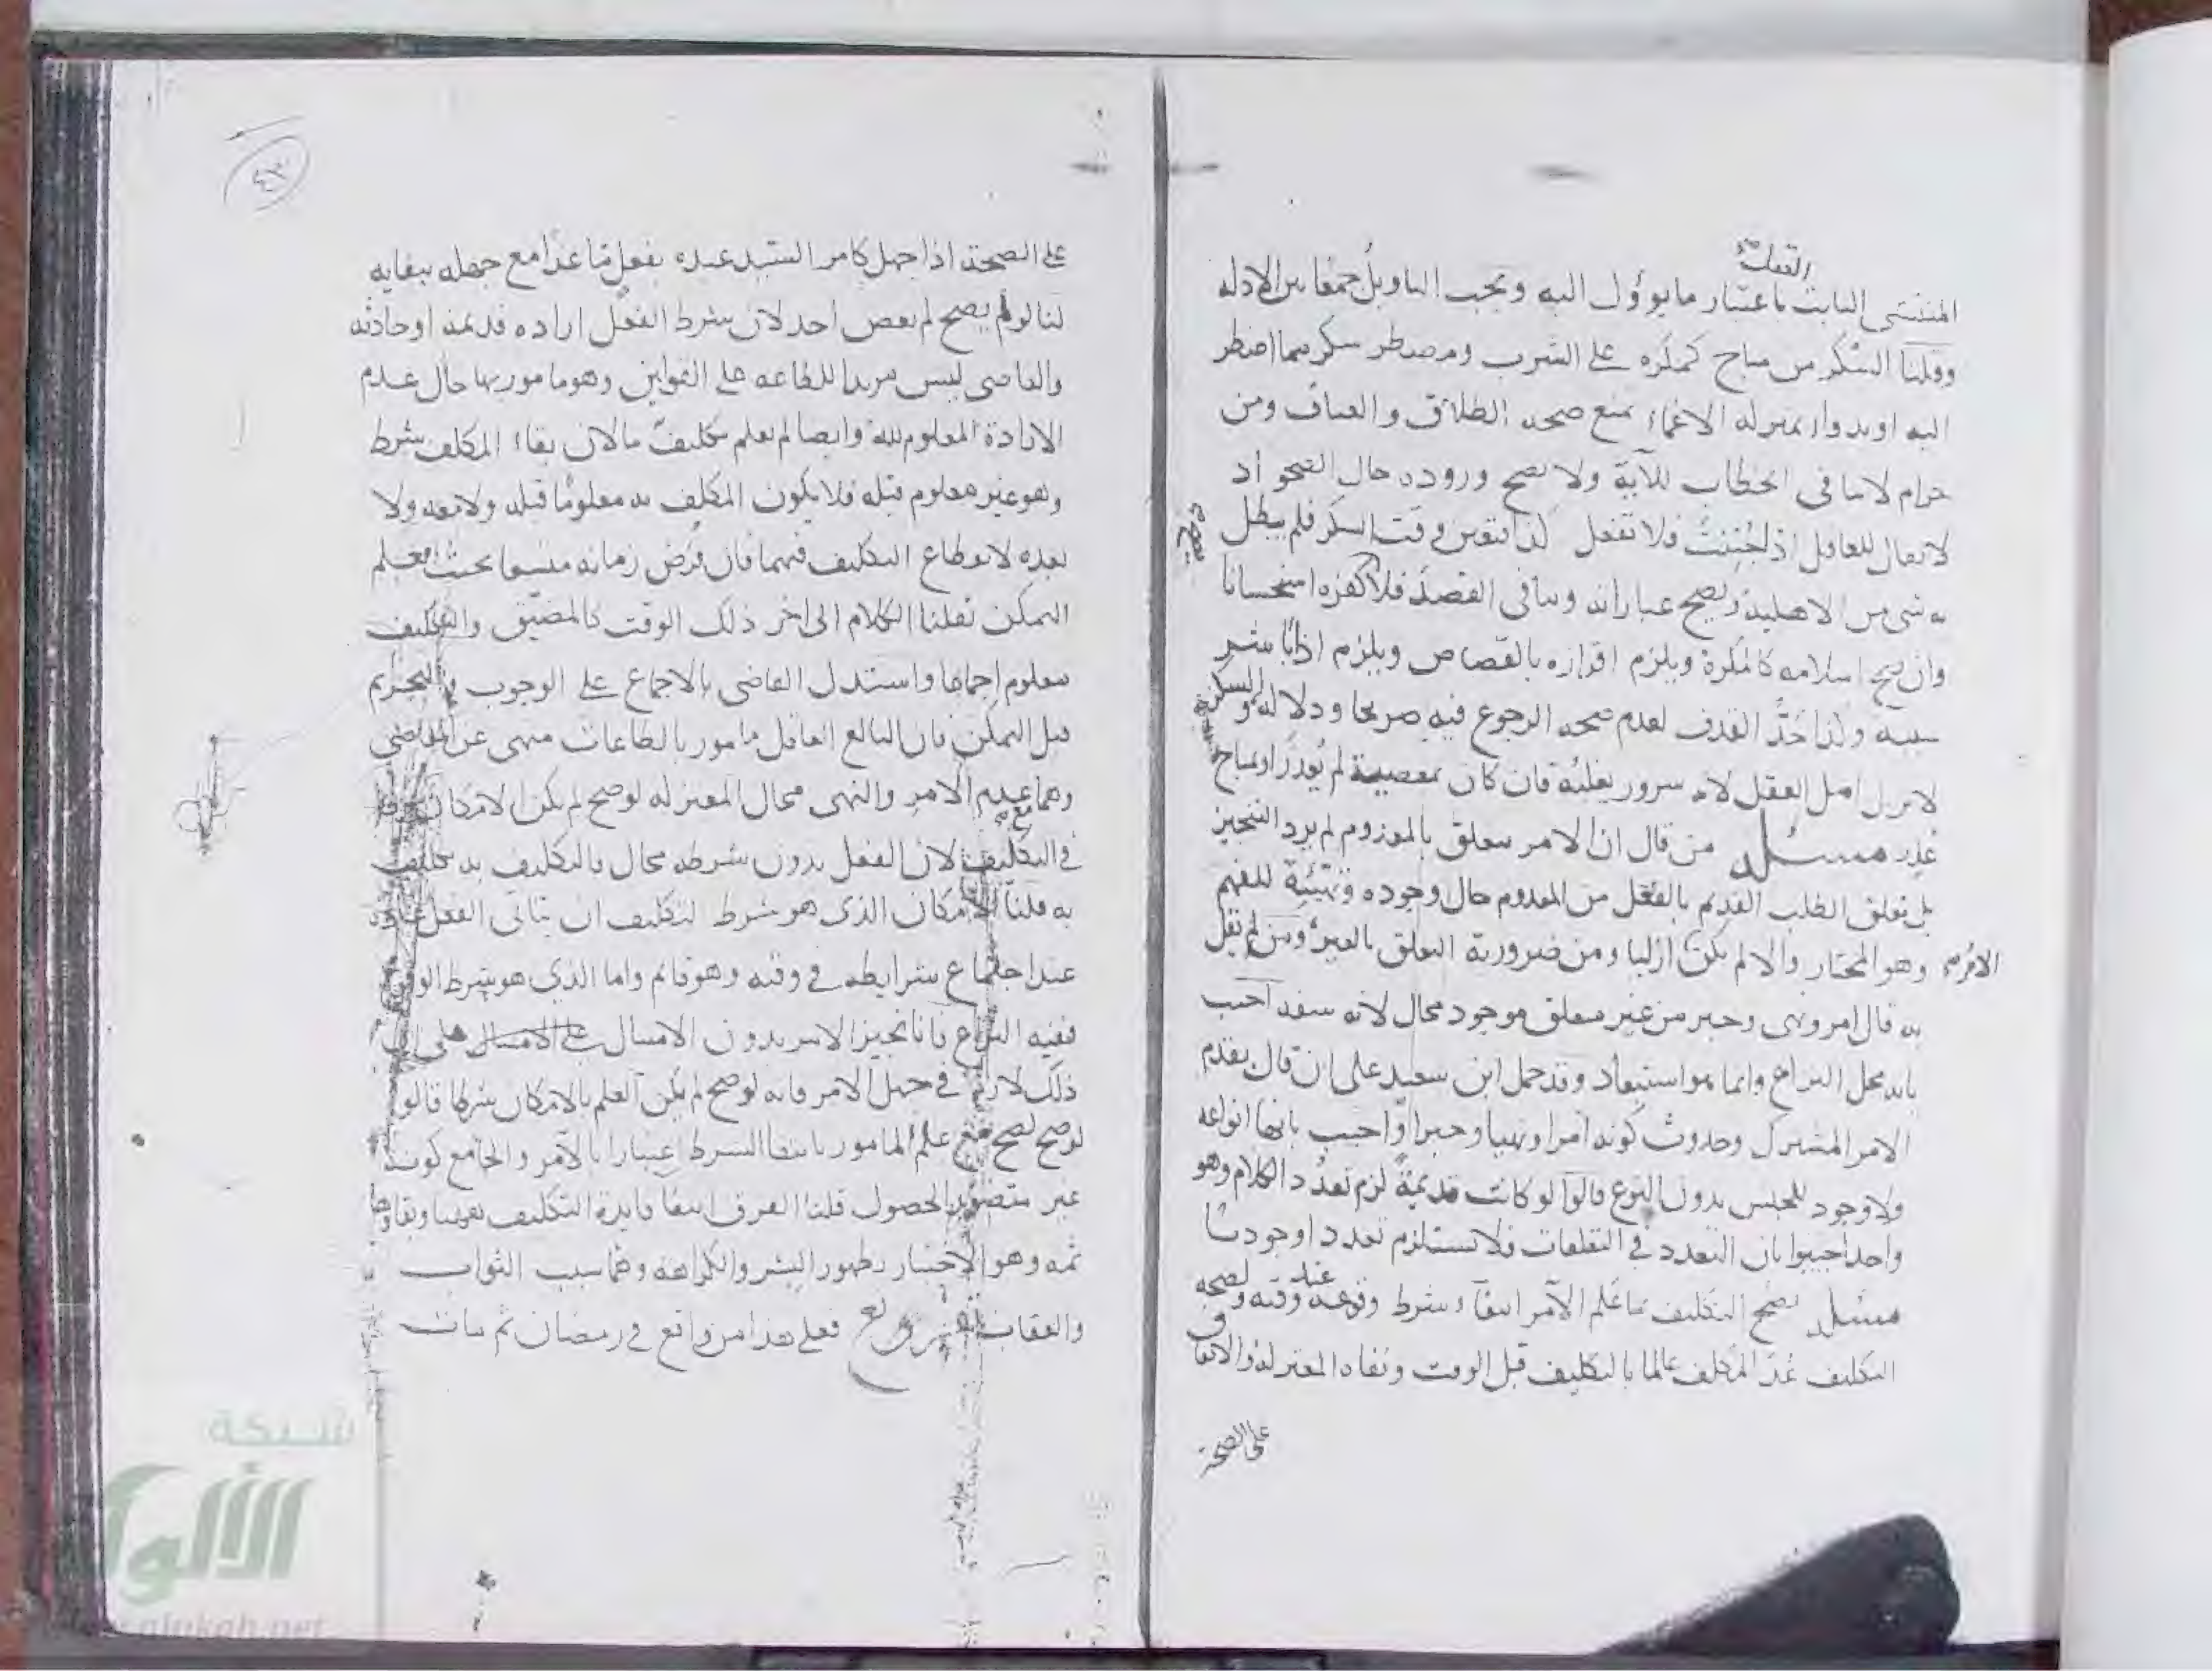 العقلـ صح
المنتشي الثابت باعتبار ما يوؤول اليه ويجب التاويل جمعا بين الادلة
وقلنا السُكر من مباح كمكره على الشرب ومضطر سكر مما اضطر
اليه او بدواء بمنزلة الاغماء يمنع صحه الطلاق والعتاق ومن
حرام لا ينافي الخطاب للآية ولا يصح وروده حال الصحو اذ
لا يقال للعاقل اذ اجُننتَ فلا تفعل كذا فتعين وقت السكر فلم يبطل
به شي من الاهلية وتصح عباراته وينافي القصد فلا كفره استحسانا
يصح
وان يصح اسلامه كالمُكره ويلزم اقراره بالقصاص ويلزم اذا باشر
سببه وكذا حَدّ القذف لعدم صحه الرجوع فيه صريحا ودلالة والسكر
لا يزيل اصل العقل لانه سرور يغلبُه فان كان بمعصية لم يُعذر او بمباح
عُذِر مسئله من قال ان الامر يتعلق بالمعدوم لم يرد التنجيز
بل تعلق الطلب القديم بالفعل من المعدوم حال وجوده وتهيئة للفهم
وهو المختار والا لم يكن الامر صح ازليا ومن ضرورية التعلق بالغير ومن لم يقل
به قال امر ونهي وخبر من غير متعلق موجود محال لانه سفه اجيب
بانه محل النزاع وانما هو استبعاد وقد حمل ابن سعيد على ان قال بقدم
الامر المشترك وحدوث كونه امرا ونهيا وخبرا واجيب بانها انواعه
ولا وجود للجنس بدون النوع قالوا لو كانت قديمة لزم تعدُّد الكلام وهو
واحد اجيبوا بان التعدد في التعلقات فلا تستلزم تعدد اوجوديا
مسئله يصح التكليف بما علم الآمر انتفا شرط وقوعه عند وقته ولصحه
التكليف عُدّ المكلف عالما بالتكليف قبل الوقت ونفاه المعتزلة والاتفاق
على الصحة
٤٣
على الصحة اذا جهل كامر السيد عبده بفعلٍ مّا غدا مع جهله ببقايه
لنا لو لم يصح لم يعص احد لان شرط الفعل ارادة قديمة او حادثة
والعاصي ليس مريدا للطاعه على القولين وهو مامور بها حال عدم
الارادة المعلوم لله وايضا لم يعلم تكليف ما لان بقاء المكلف شرط
وهو غير معلوم قبله فلا يكون المكلف به معلوما قبله ولا معه ولا
بعده لانقطاع التكليف فيهما فان فُرض زمانه متسعا بحيث يعلم
التمكن نقلنا الكلام الى اخر ذلك الوقت كالمضيّق والتكليف
معلوم اجماعا واستدل القاضي بالاجماع على الوجوب والتحريم
قبل التمكن فان البالغ العاقل مامور بالطاعات منهي عن المعاصي
وهما عدم الامر والنهي محال المعتزلة لو صح لم يكن الامكان
في التكليف لان الفعل بدون شرطه محال فالتكليف به تكليف
به قلنا الامكان الذي هو شرط لتكليف ان يتاتى الفعل عادة
عند اجتماع شرايطه في وقته وهو قائم واما الذي هو شرط الوقوع
ففيه النزاع فانا نجيز الامر بدون الامتثال
ذلك لازم في جهل الامر فانه لو صح لم يكن العلم بالامكان شرطا قالوا
لو صح لصح مع علم المامور بانتفا الشرط اعتبارا بالآمر والجامع كونه
غير متصور الحصول قلنا الفرق انتفا فايدة التكليف ههنا وبقاوها
ثمه وهو الاختبار بظهور البشر والكراهه وهما سبب الثواب
والعقاب فعلى هذا من واقع في رمضان ثم مات
شبكة
الألوكة
alukah.net